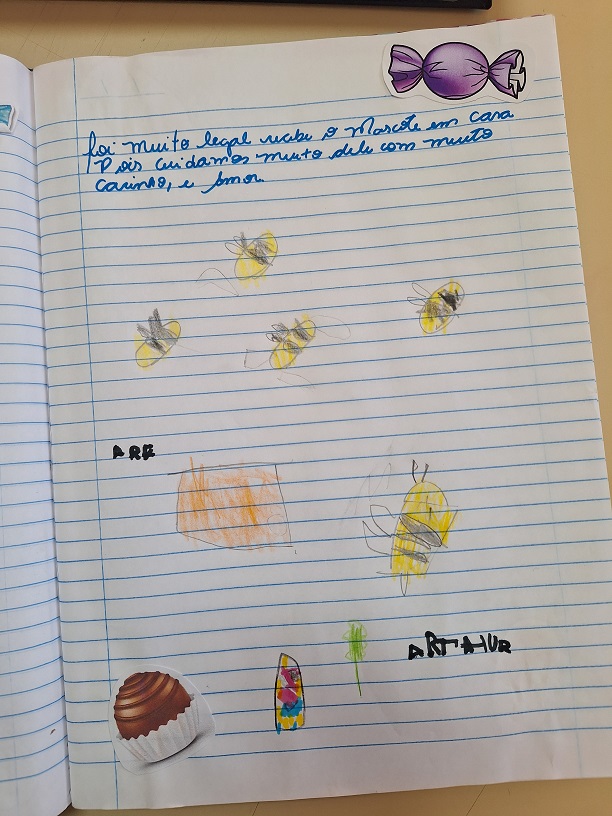 foi muito legal recebe o Mascote em casa
Pois cuidamos muito dele com muito
carinho, e Amor.
ARE
ARTHUR